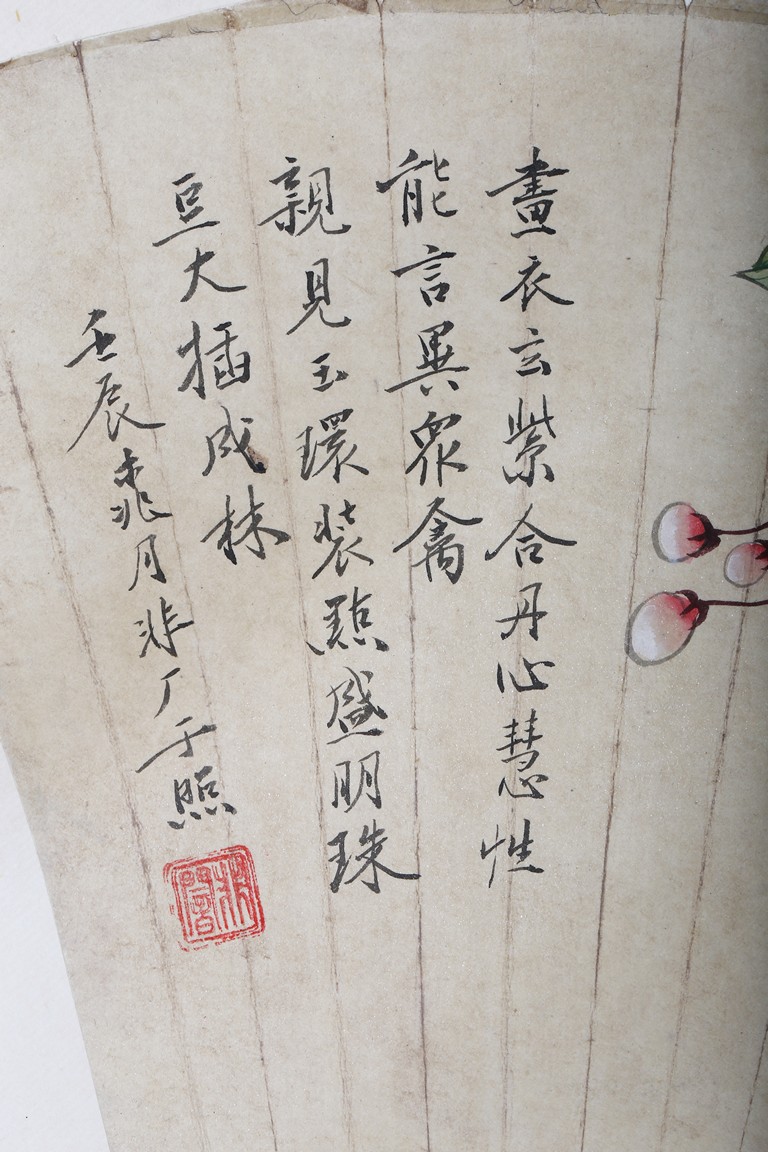 畫衣玄紫合丹心慧性
能言異眾禽
親見玉環裝點盛明珠
豆大插成林
壬辰桃月非厂于照
非闇